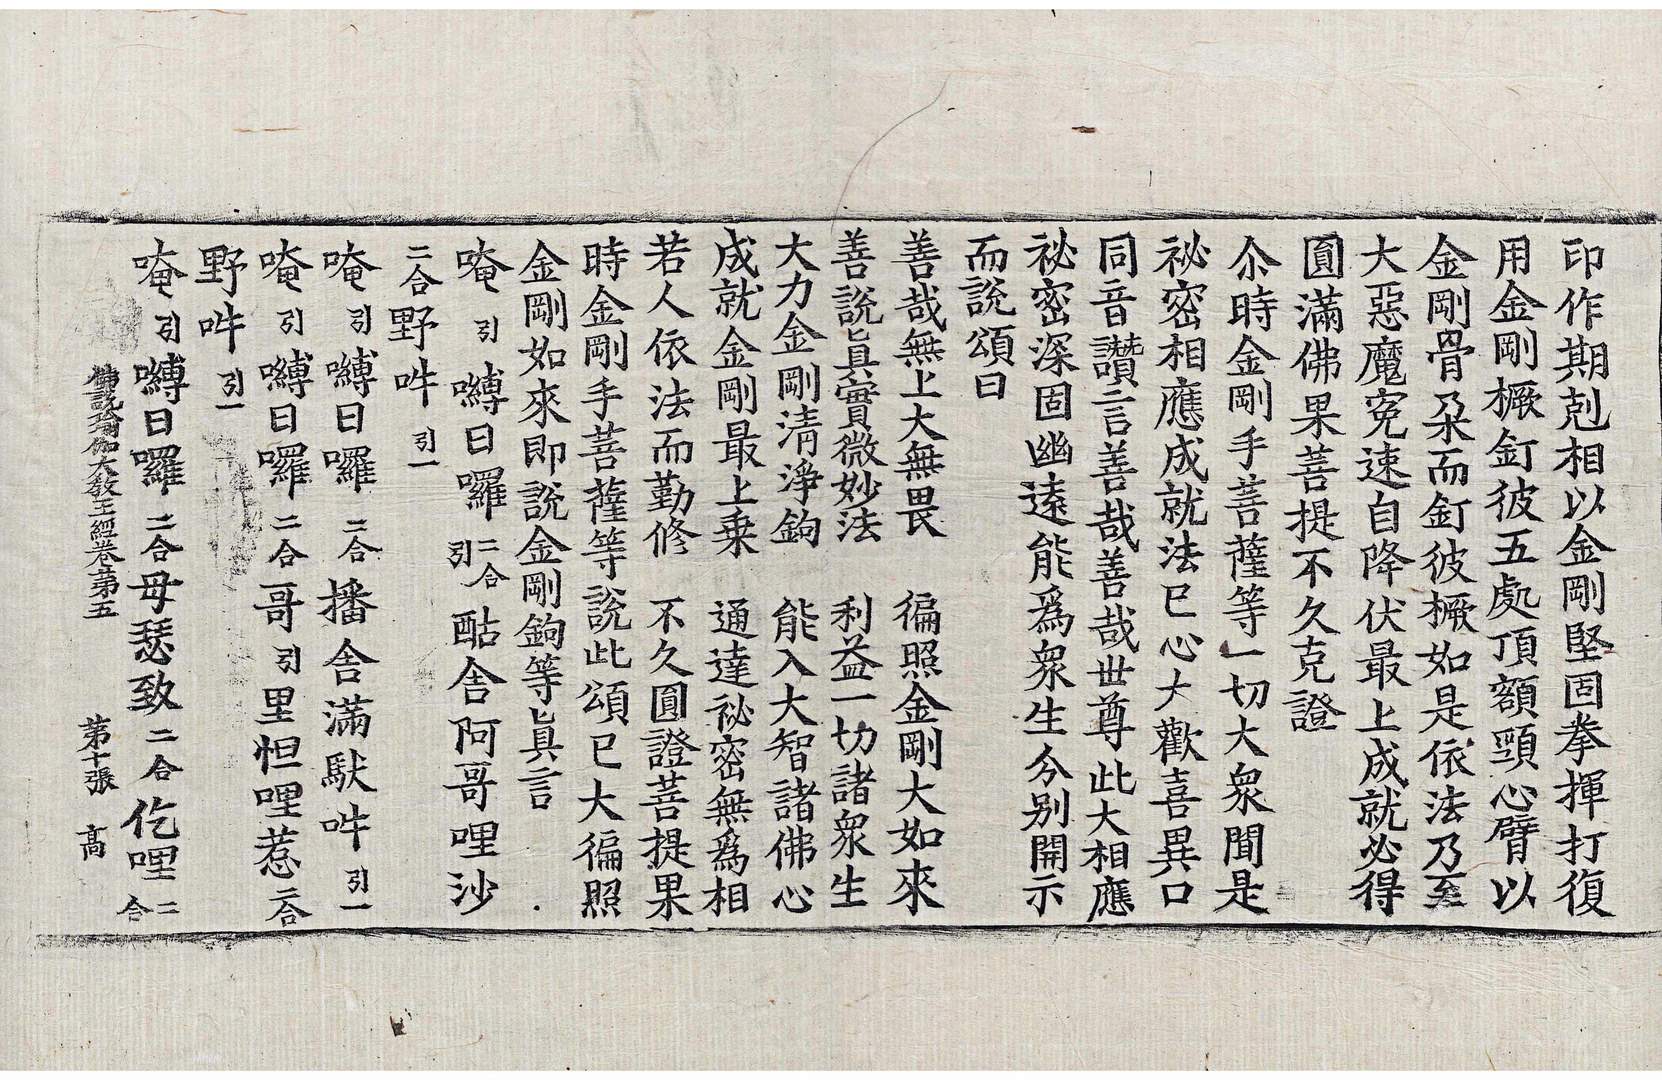 印作期剋相以金剛堅固拳揮打復
用金剛橛釘彼五處頂額頸心臂以
金剛骨朵而釘彼橛如是依法乃至
大惡魔寃速自降伏最上成就必得
圓滿佛果菩提不久克證
尒時金剛手菩薩等一切大衆聞是
祕密相應成就法已心大歡喜異口
同音讚言善哉善哉世尊此大相應
祕密深固幽遠能爲衆生分别開示
而說頌曰
善哉無上大無畏　徧照金剛大如來
善說真實微妙法　利益一切諸衆生
大力金剛清淨鉤　能入大智諸佛心
成就金剛最上乗　通達祕密無爲相
若人依法而勤修　不久圓證菩提果
時金剛手菩薩等說此頌已大徧照
金剛如來即說金剛鉤等真言
唵引嚩日囉二合引酤舍阿哥哩沙
二合野吽引一
唵引嚩日囉二合播舍滿馱吽引一
唵引嚩日囉二合哥引里怛哩惹二合
野吽引一
唵引嚩日囉二合母瑟致二合仡哩二合
佛説瑜伽大敎王經卷第五　第十張　髙